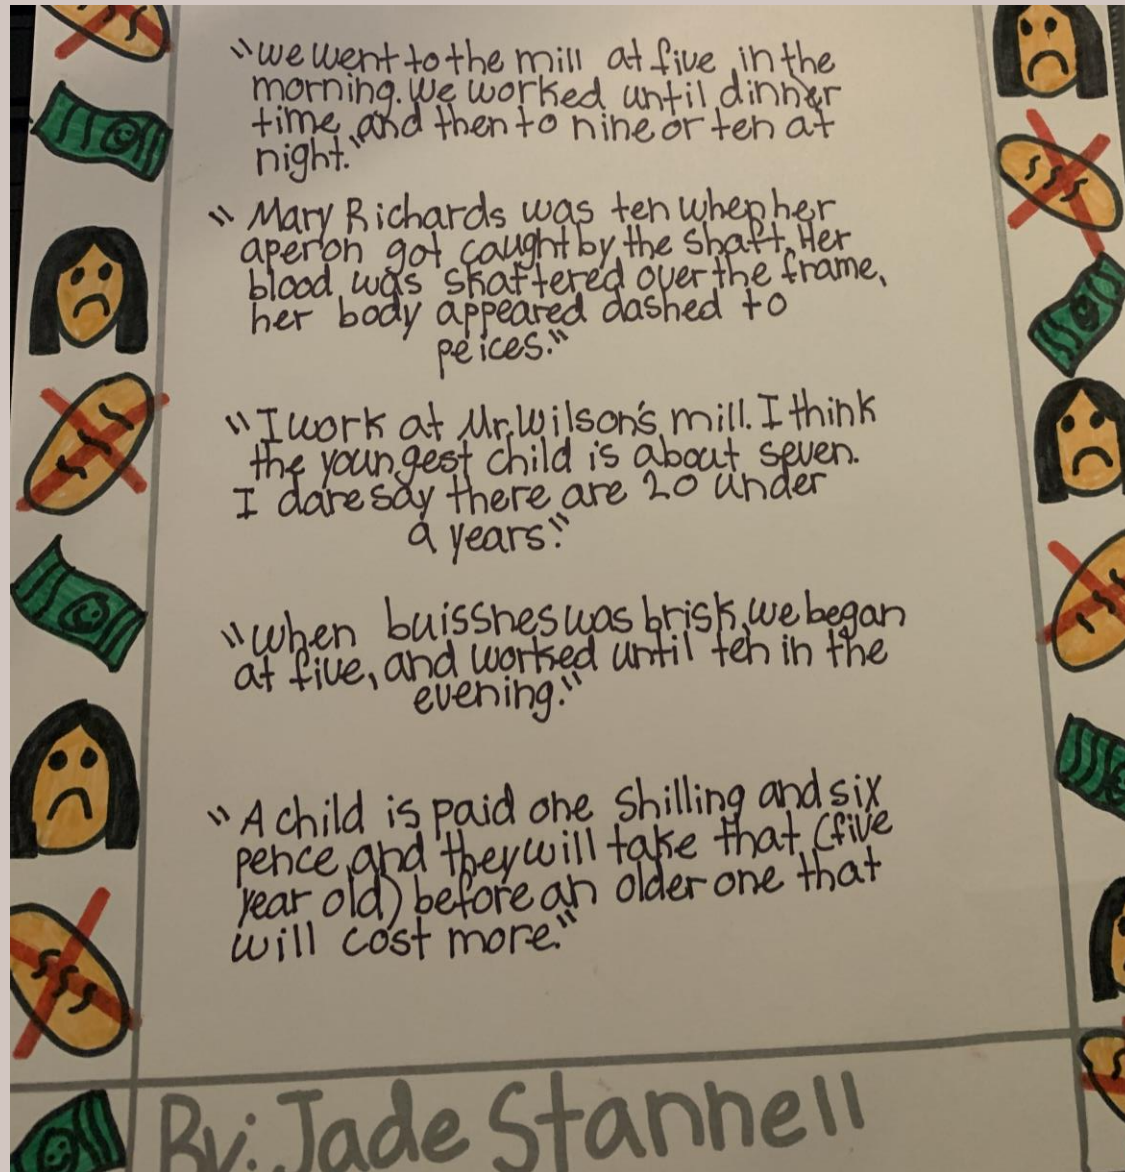 "we went to the mill at five in the
morning. We worked until dinner
time, and then to nine or ten at
night."
"Mary Richards was ten when her
aperon got caught by the shaft. Her
blood was skattered over the frame,
her body appeared dashed to
peices."
"I work at Mr. Wilson's mill. I think
the youngest child is about seven.
I daresay there are 20 under
9 years."
"when buissnes was brisk, we began
at five, and worked until ten in the
evening."
"A child is paid one shilling and six
pence, and they will take that (five
year old) before an older one that
will cost more."
By: Jade Stannell